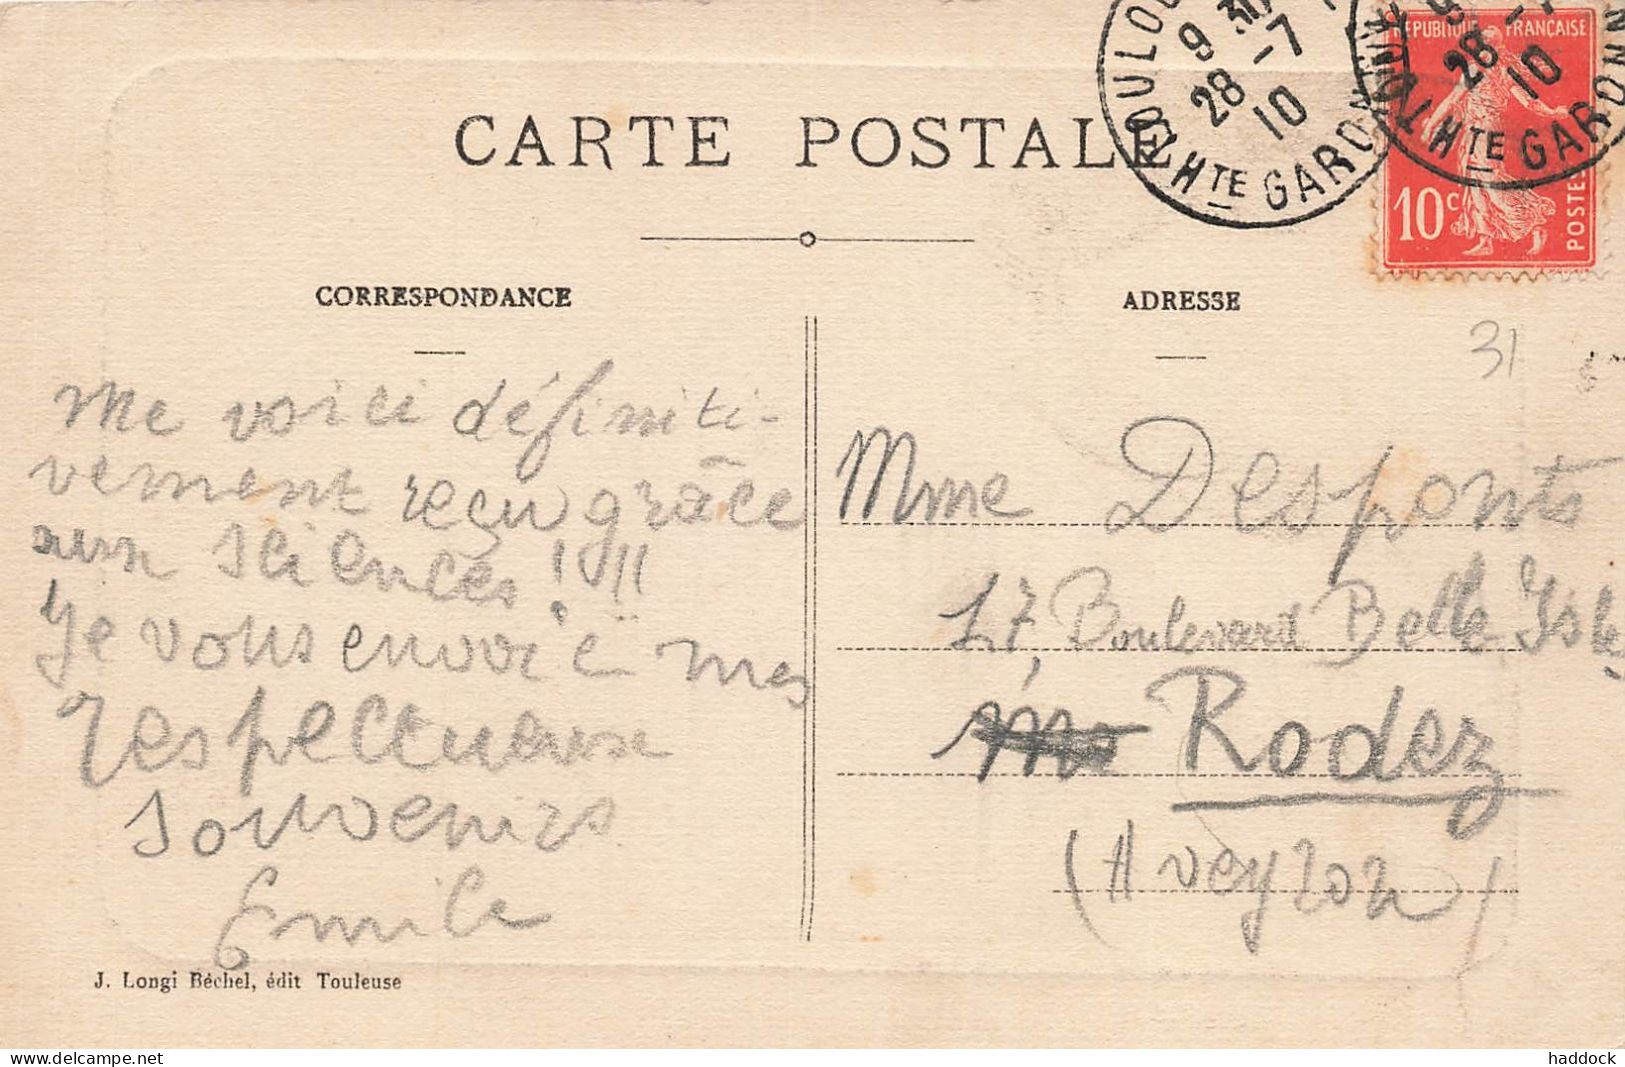 CARTE POSTALE
TOULOU
9 30
28 -7
10
Hte GARONNE
9
28 -7
10
TOU
Hte GARONN
REPUBLIQUE FRANÇAISE
10 c
POSTES
CORRESPONDANCE
ADRESSE
31
Me voici définiti-
vement reçu grâce
aux sciences ! !!
Je vous envoie mes
respectueux
souvenirs
Emile
Mme Desponts
17, Boulevard Belle-Isle,
Rodez
(Aveyron)
J. Longi Béchel, édit Touleuse
haddock